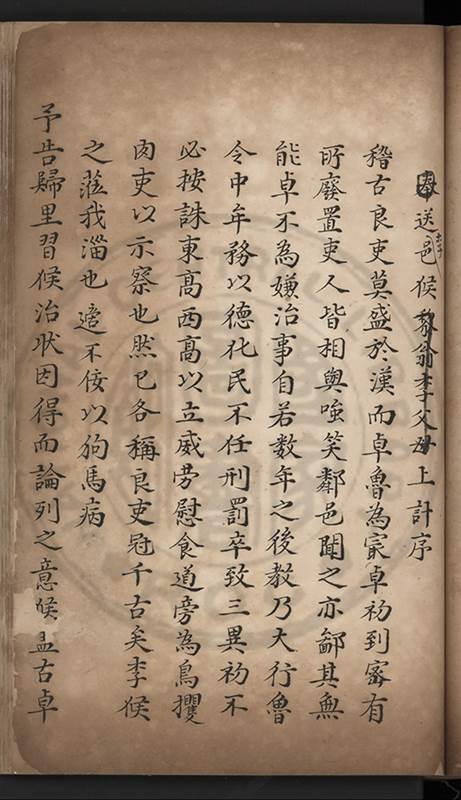 送邑李侯上計序
稽古良吏莫盛於漢而卓魯為㝡卓初到密有
所廢置吏人皆相與嗤笑鄰邑聞之亦鄙其無
能卓不為嫌治事自若数年之後教乃大行魯
令中牟務以德化民不任刑罰卒致三異初不
必按誅東高西高以立威勞慰食道旁為鳥攫
肉吏以示察也然已各稱良吏冠千古矣李侯
之蒞我淄也適不佞以狗馬病
予告歸里習侯治狀因得而論列之意侯盖古卓